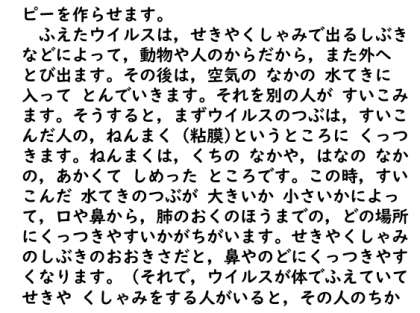 ピーを作らせます。
　ふえたウイルスは，せきやくしゃみで出るしぶき
などによって，動物や人のからだから，また外へ
とび出ます。その後は，空気の なかの 水てきに
入って とんでいきます。それを別の人が すいこみ
ます。そうすると，まずウイルスのつぶは，すいこ
んだ人の，ねんまく (粘膜)というところに くっつ
きます。ねんまくは，くちの なかや，はなの なか
の，あかくて しめった ところです。この時，すい
こんだ 水てきのつぶが 大きいか 小さいかによっ
て，口や鼻から，肺のおくのほうまでの，どの場所
にくっつきやすいかがちがいます。せきやくしゃみ
のしぶきのおおきさだと，鼻やのどにくっつきやす
くなります。（それで，ウイルスが体でふえていて
せきや くしゃみをする人がいると，その人のちか